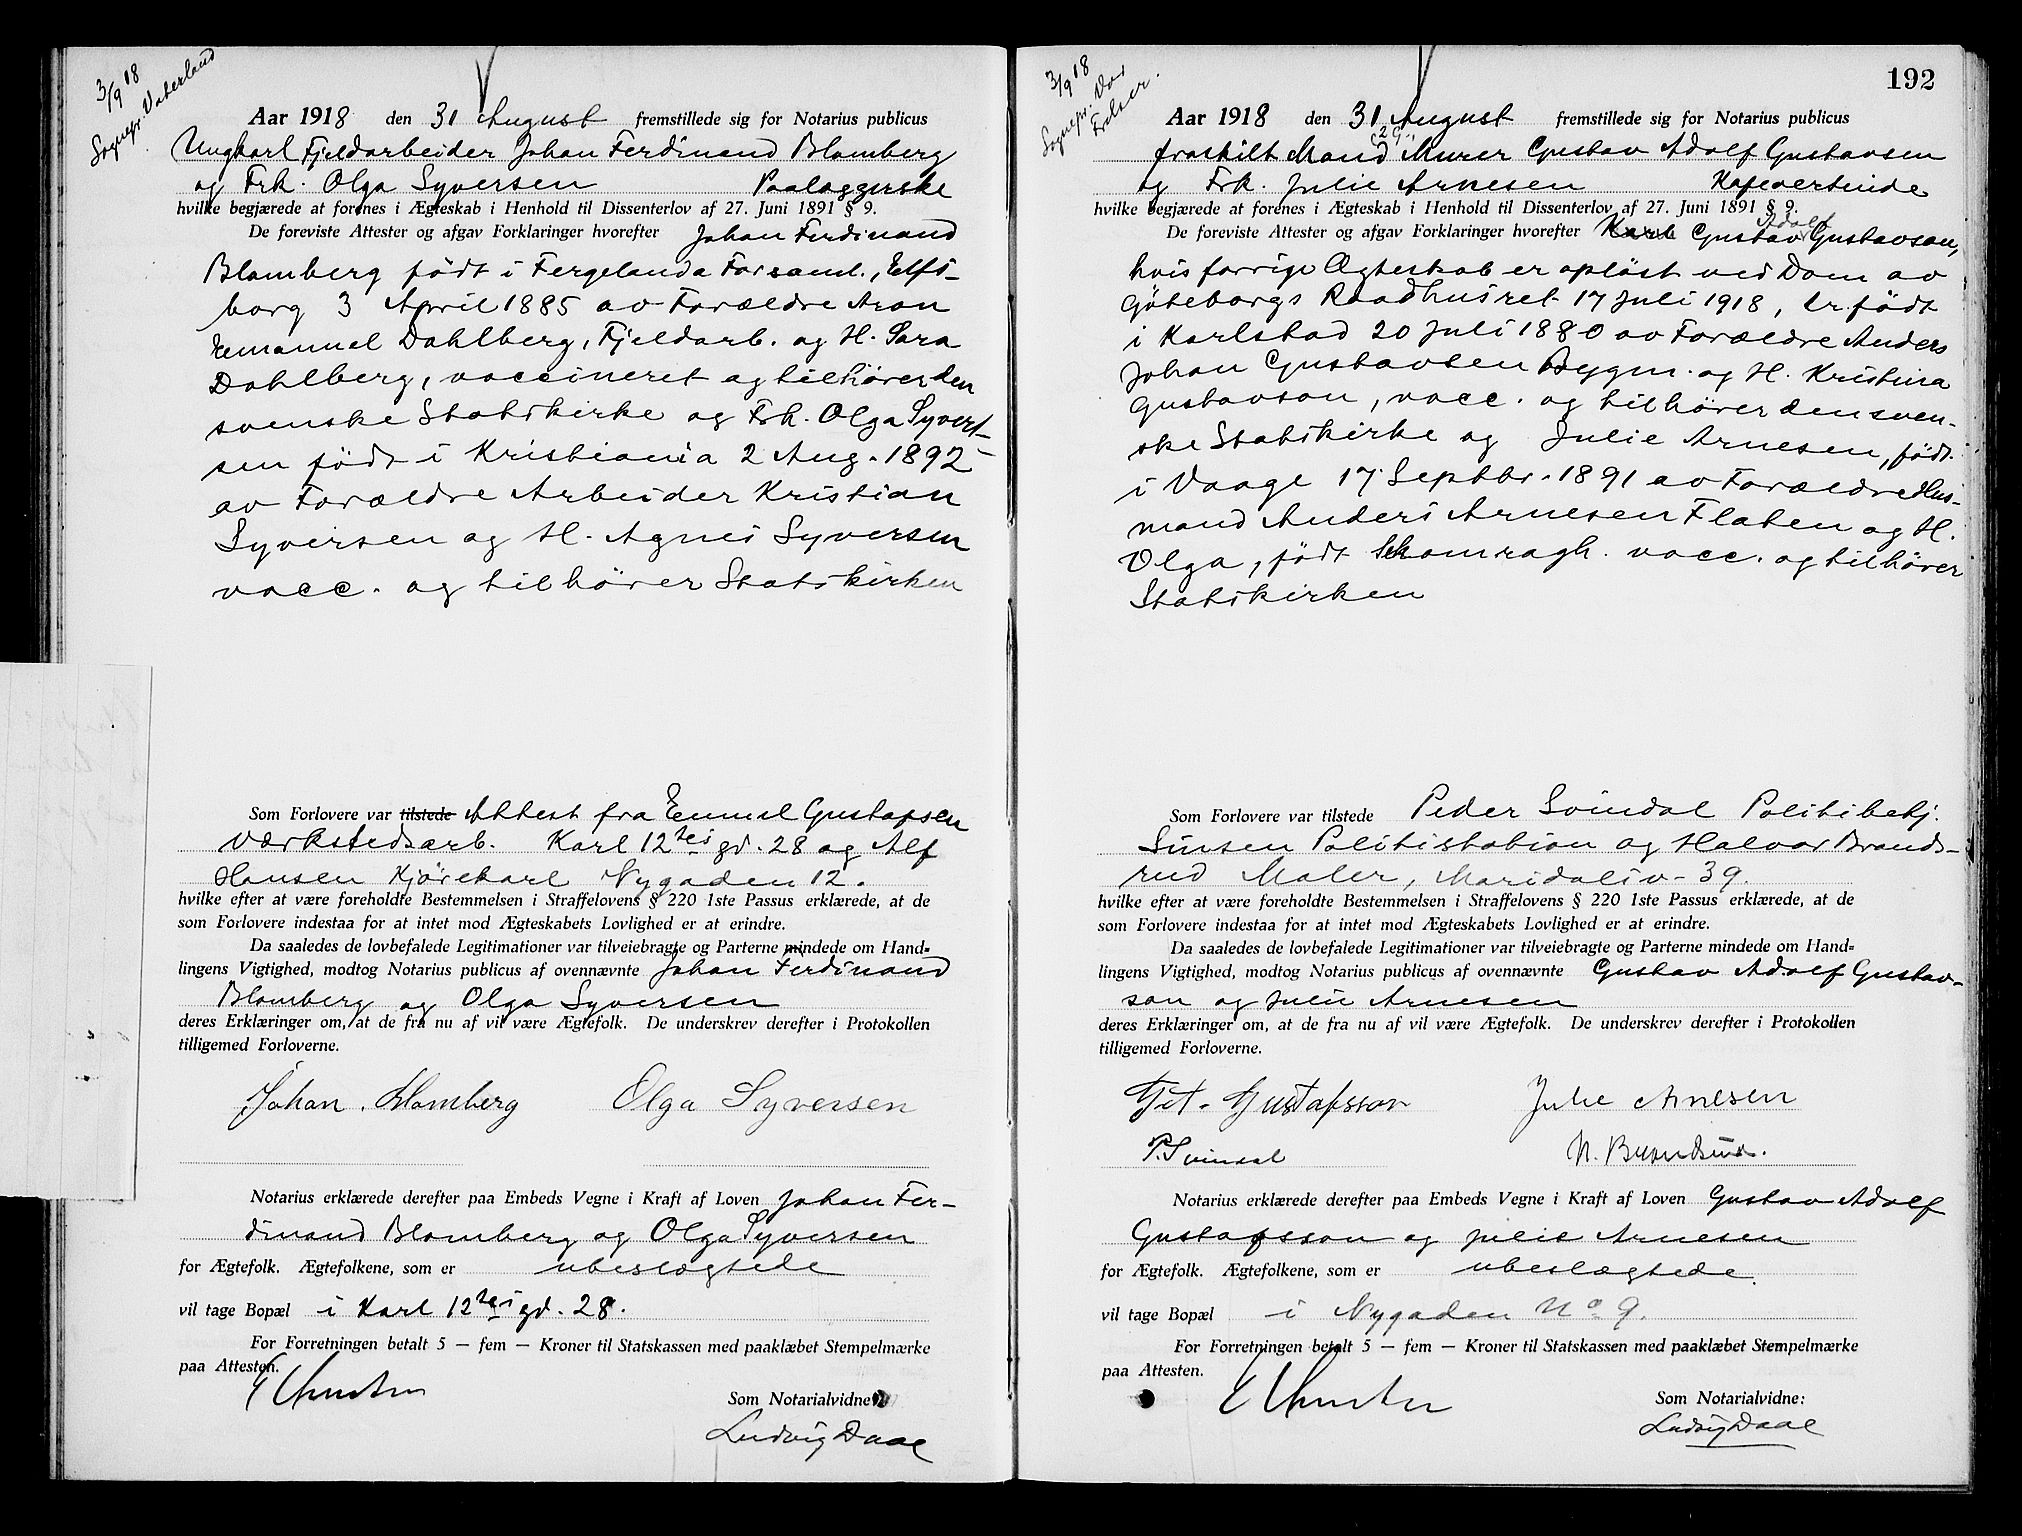 3/9 18
Sognepr. Vaterland
Aar 1918 den 31 August fremstillede sig for Notarius publicus
Ungkarl Fjeldarbeider Johan Ferdinand Blomberg
og Frk. Olga Syversen Paalæggerske
hvilke begjærede at forenes i Ægteskab i Henhold til Dissenterlov af 27. Juni 1891 § 9.
De foreviste Attester og afgav Forklaringer hvorefter Johan Ferdinand
Blomberg født i Fergelanda Forsaml., Elfs-
borg 3 April 1885 av Forældre Aron
Emanuel Dahlberg, Fjeldarb. og H. Sara
Dahlberg, vaccineret og tilhører den
svenske Statskirke og Frk. Olga Syvert-
sen født i Kristiania 2 Aug. 1892
av Forældre Arbeider Kristian
Syversen og H. Agnes Syversen
vacc. og tilhører Statskirken
Som Forlovere var tilstede Attest fra Emmel Gustafsen
Værkstedsarb. Karl 12tes gd. 28 og Alf
Hansen Kjørekarl Nygaden 12.
hvilke efter at være foreholdte Bestemmelsen i Straffelovens § 220 1ste Passus erklærede, at de
som Forlovere indestaa for at intet mod Ægteskabets Lovlighed er at erindre.
Da saaledes de lovbefalede Legitimationer var tilveiebragte og Parterne mindede om Hand-
lingens Vigtighed, modtog Notarius publicus af ovennævnte Johan Ferdinand
Blomberg og Olga Syversen
deres Erklæringer om, at de fra nu af vil være Ægtefolk. De underskrev derefter i Protokollen
tilligemed Forloverne.
Johan. Blomberg Olga Syversen
Notarius erklærede derefter paa Embeds Vegne i Kraft af Loven Johan Fer-
dinand Blomberg og Olga Syversen
for Ægtefolk. Ægtefolkene, som er ubeslægtede
vil tage Bopæl i Karl 12tes gd. 28.
For Forretningen betalt 5 — fem — Kroner til Statskassen med paaklæbet Stempelmærke
paa Attesten.
Som Notarialvidne
Ludvig Daae
192
3/9 18
Sognepr. Vor
Frelser.
Aar 1918 den 31 August fremstillede sig for Notarius publicus
fraskilt Mand Murer Gustav Adolf Gustavsen
og Frk. Julie Arnesen Kafevertinde
hvilke begjærede at forenes i Ægteskab i Henhold til Dissenterlov af 27. Juni 1891 § 9.
De foreviste Attester og afgav Forklaringer hvorefter Karl Gustav Adolf Gustavson,
hvis forrige Ægteskab er opløst ved Dom av
Göteborgs Raadhusret 17 Juli 1918, er født
i Karlstad 20 Juli 1880 av Forældre Anders
Johan Gustavsen Bygm. og H. Kristina
Gustavson, vacc. og tilhører den sven-
ske Statskirke og Julie Arnesen, født
i Vaage 17 Septbr. 1891 av Forældre Hus-
mand Anders Arnesen Flaten og H.
Olga, født vacc. og tilhører
Statskirken
Som Forlovere var tilstede Peder Svindal Politibetj.
Sinsen Politistation og Halvor Brands-
rud Maler, Maridalsv. 39.
hvilke efter at være foreholdte Bestemmelsen i Straffelovens § 220 1ste Passus erklærede, at de
som Forlovere indestaa for at intet mod Ægteskabets Lovlighed er at erindre.
Da saaledes de lovbefalede Legitimationer var tilveiebragte og Parterne mindede om Hand-
lingens Vigtighed, modtog Notarius publicus af ovennævnte Gustav Adolf Gustav-
son og Julie Arnesen
deres Erklæringer om, at de fra nu af vil være Ægtefolk. De underskrev derefter i Protokollen
tilligemed Forloverne.
Gustafsson Julie Arnesen
P. Svindal H. Brandsrud.
Notarius erklærede derefter paa Embeds Vegne i Kraft af Loven Gustav Adolf
Gustafsson og Julie Arnesen
for Ægtefolk. Ægtefolkene, som er ubeslægtede.
vil tage Bopæl i Nygaden No 9.
For Forretningen betalt 5 — fem — Kroner til Statskassen med paaklæbet Stempelmærke
paa Attesten.
Som Notarialvidne:
Ludvig Daae